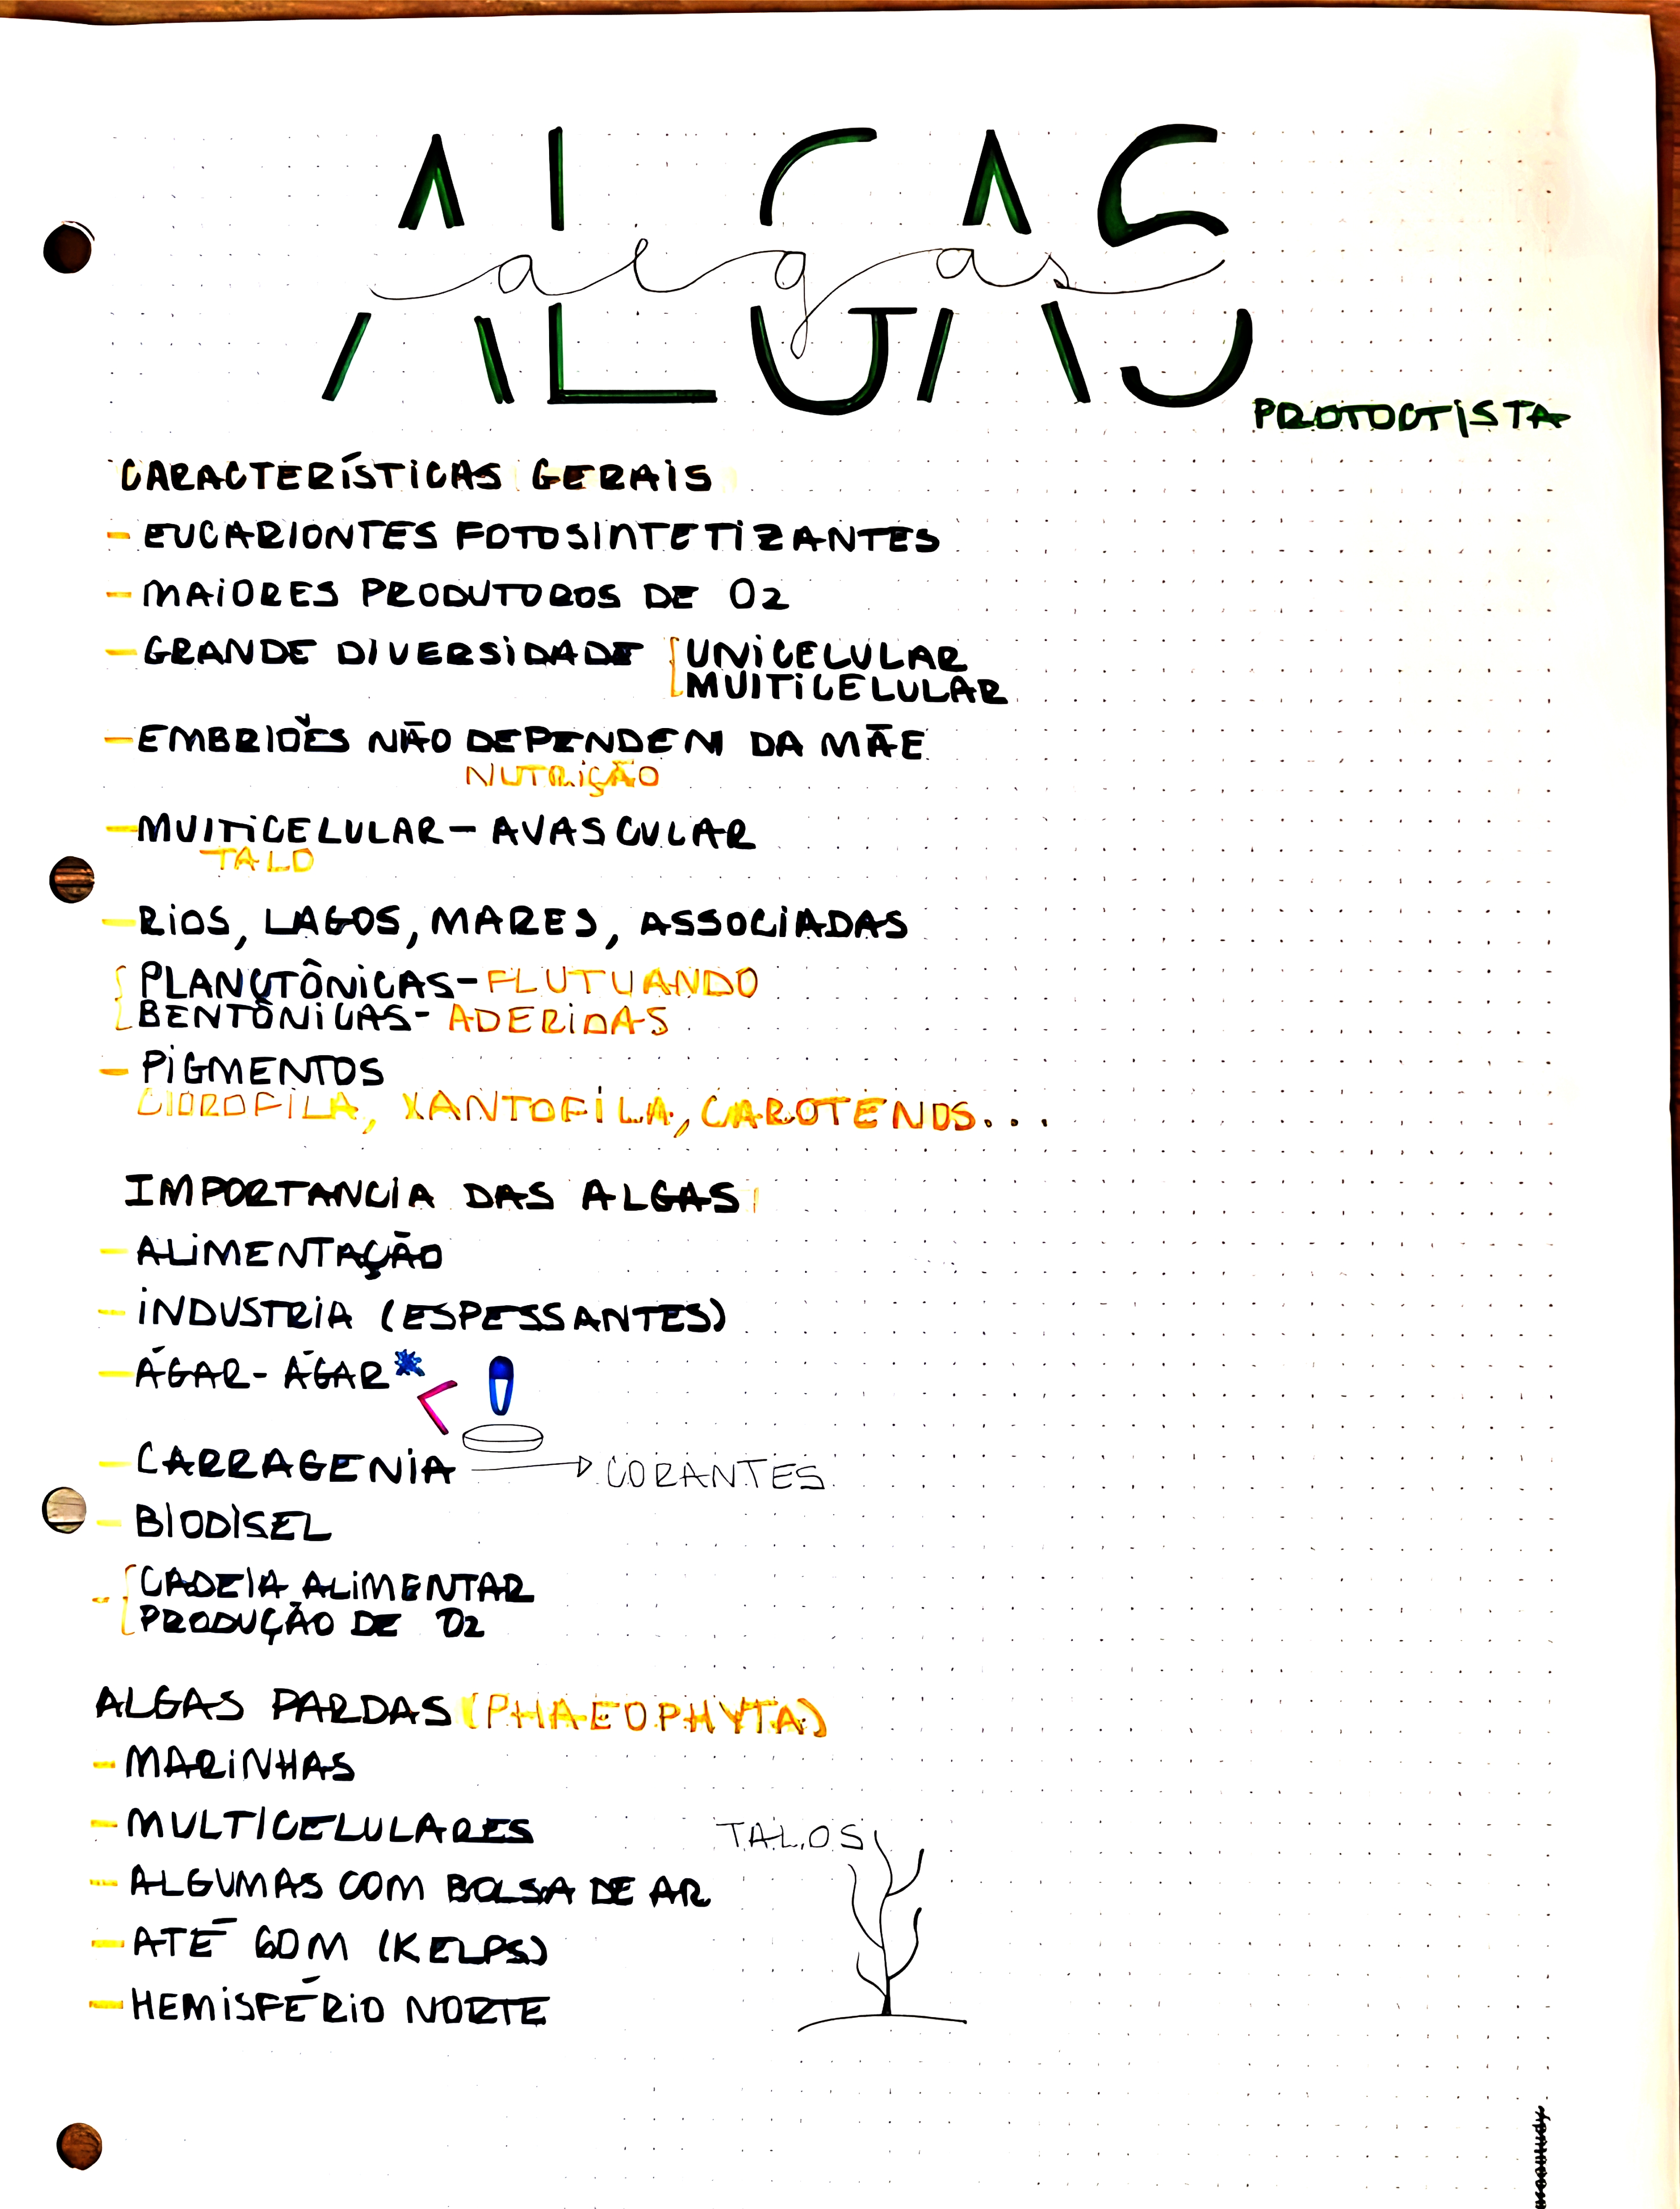 ALGAS
algas
PROTOCTISTA
CARACTERÍSTICAS GERAIS
- EUCARIONTES FOTOSSINTETIZANTES
- MAIORES PRODUTOROS DE O2
- GRANDE DIVERSIDADE { UNICELULAR
MULTICELULAR
- EMBRIÕES NÃO DEPENDEM DA MÃE
NUTRIÇÃO
- MULTICELULAR - AVASCULAR
TALO
- RIOS, LAGOS, MARES, ASSOCIADAS
{ PLANCTÔNICAS - FLUTUANDO
BENTÔNICAS - ADERIDAS
- PIGMENTOS
CLOROFILA, XANTOFILA, CAROTENOS...
IMPORTANCIA DAS ALGAS
- ALIMENTAÇÃO
- INDUSTRIA (ESPESSANTES)
- ÁGAR-ÁGAR*
- CARRAGENIA → CORANTES
- BIODISEL
- { CADEIA ALIMENTAR
PRODUÇÃO DE O2
ALGAS PARDAS (PHAEOPHYTA)
- MARINHAS
- MULTICELULARES
TALOS
- ALGUMAS COM BOLSA DE AR
- ATÉ 60M (KELPS)
- HEMISFÉRIO NORTE